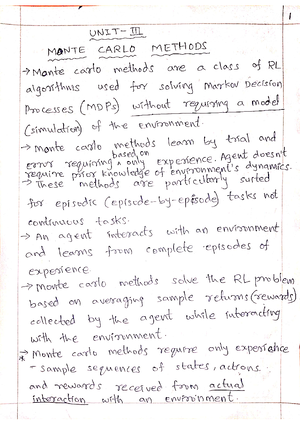 1
UNIT-III
MONTE CARLO METHODS
→ Monte carlo methods are a class of RL
algorithms used for solving Markov Decision
Processes (MDPs) without requiring a model
(simulation) of the environment.
→ Monte carlo methods learn by trial and
based on
error requiring ^ only experience. Agent doesn't
require prior knowledge of environment's dynamics.
→ These methods are particularly suited
for episodic (episode-by-episode) tasks not
continuous tasks.
→ An agent interacts with an environment
and learns from complete episodes of
experience.
→ Monte carlo methods solve the RL problem
based on averaging sample returns (rewards)
collected by the agent while interacting
with the environment.
→ Monte carlo methods require only experience
* - sample sequences of states, actions,
and rewards received from actual
interaction with an environment.